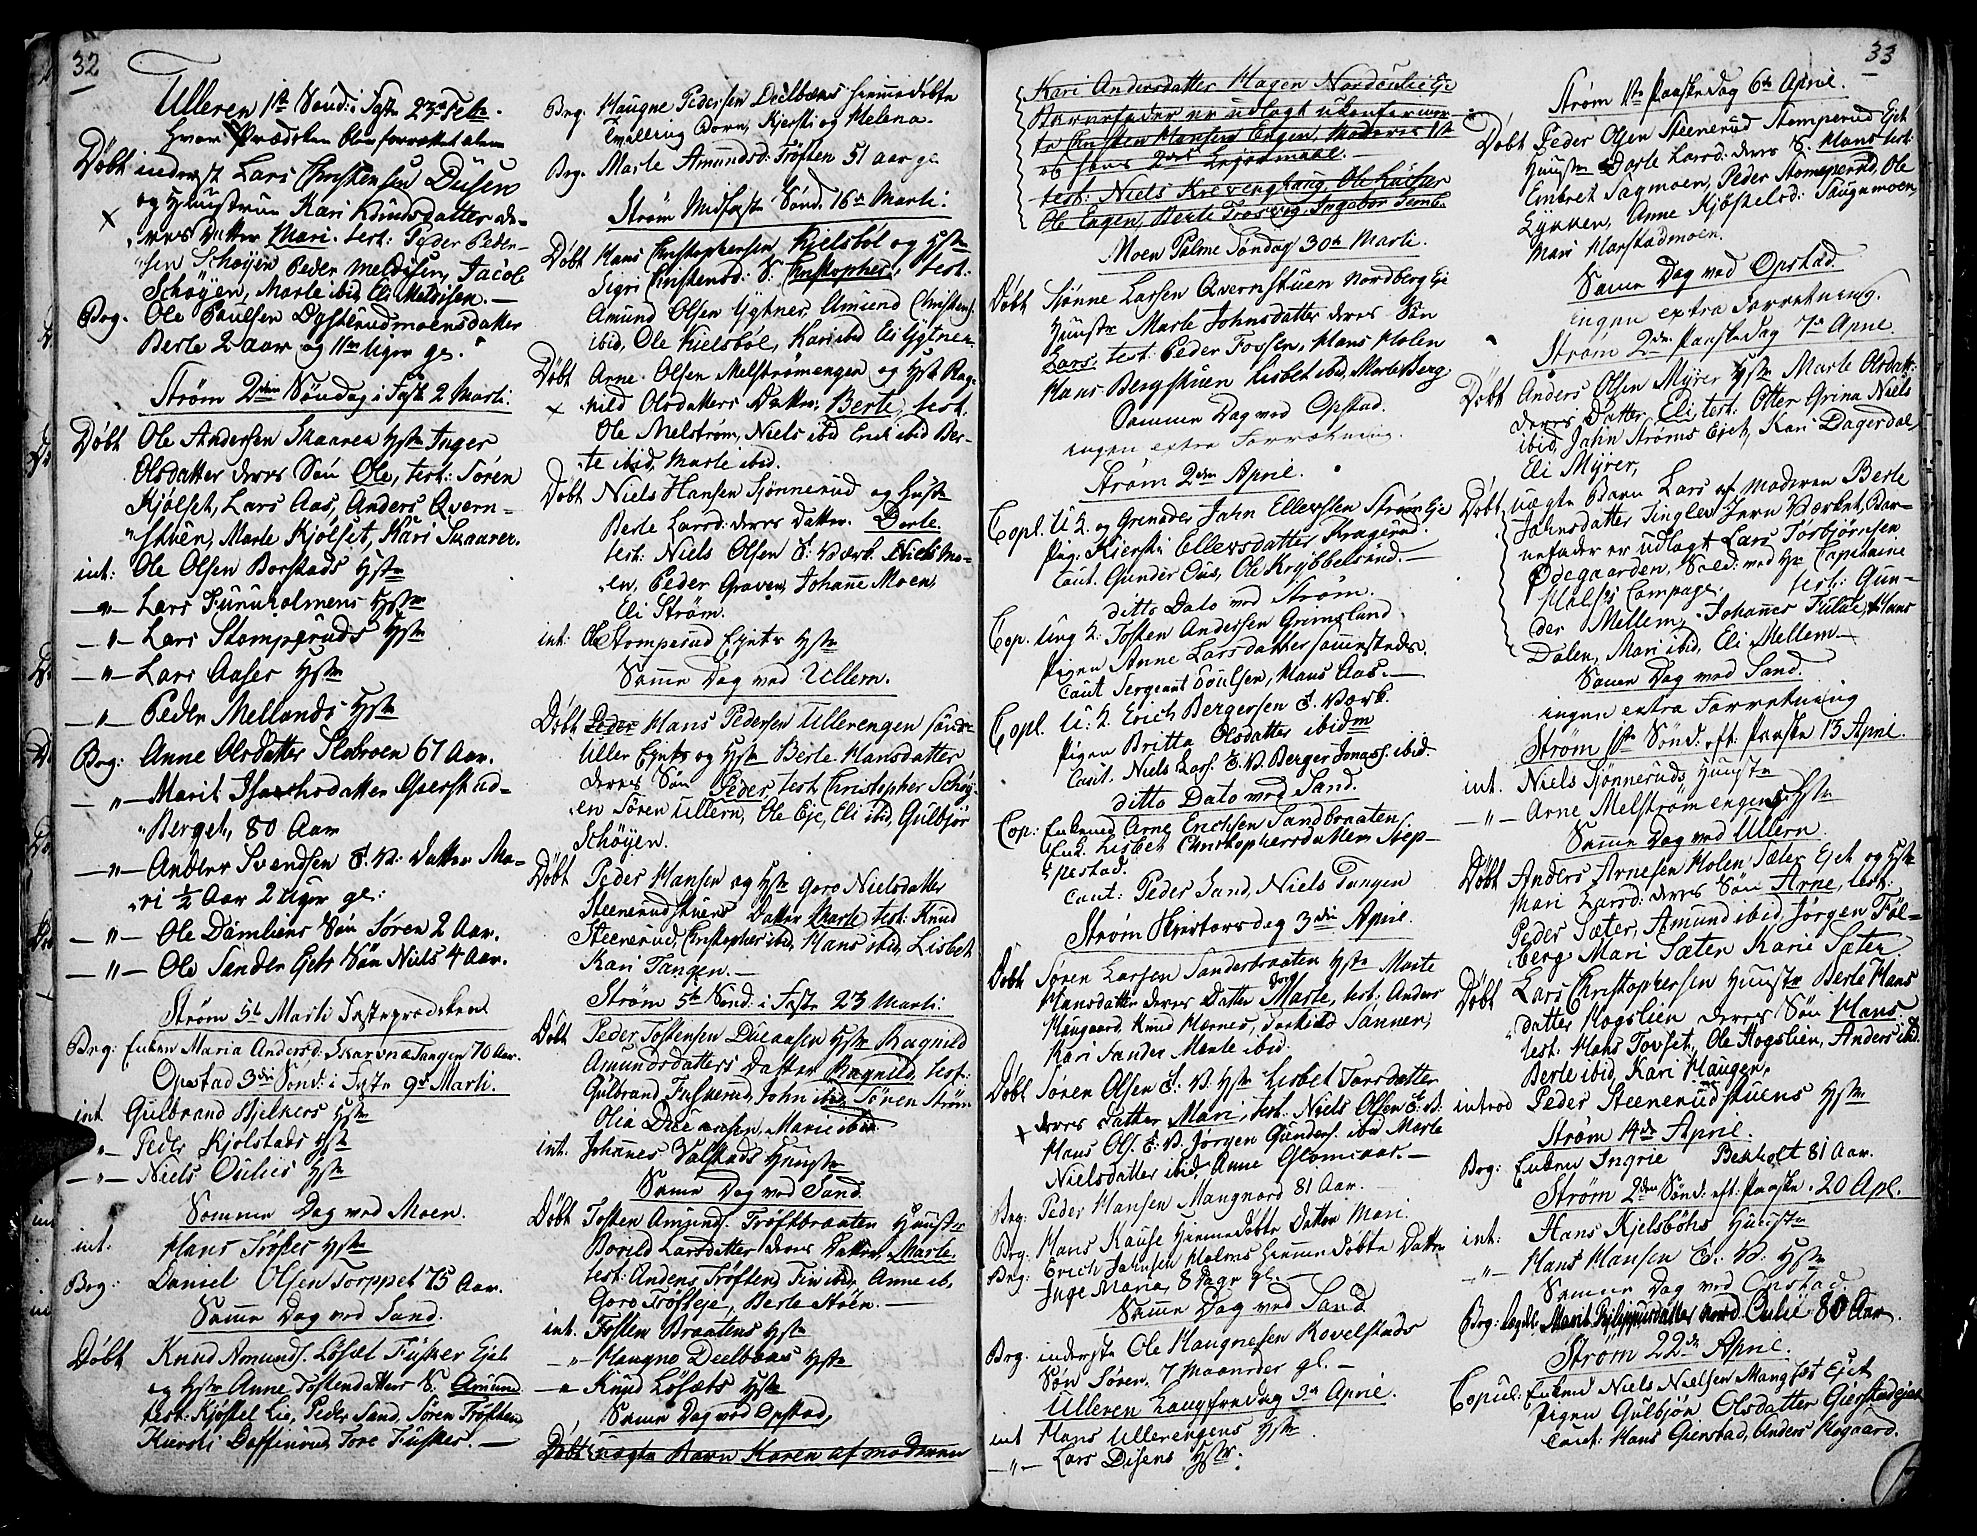 32
Ulleren 1ste Sönd: i Faste 23de Febr.
Hvor Prædiken blev forrettet alene
Döbt inderst Lars Christensen Dusen
og Huustrue Kari Knudsdatter de-
res Datter Mari. test: Peder Peder-
sen Schøyen Peder Meldisen, Jacob
Schøyen, Marte ibid, Eli Meldisen. —
Beg. Ole Poulsen Dysterudmoens datter
Berte 2 aar og 11 uger gl.
Strøm 2den Söndag i Fast 2 Marti.
Döbt Ole Andersen Skaaren Hstr Inger
Olsdatter deres Sön Ole, test: Sören
Kjölset, Lars Aas, Anders Qvern-
stuen, Marte Kjölset, Kari Skaarer.
int: Ole Olsen Borstads Hstr
—"— Lars Furuholmens Hstr
—"— Lars Stomperuds Hstr
—"— Lars Aaser Hstr
—"— Peder Mellands Hstr
Beg: Anne Olsdatter Slobroen 67 Aar.
—"— Marit Isachsdatter Gierstad-
Berget, 80 Aar
—"— Anders Svendsen E. V. Datter Ma-
ri ½ Aar 2 uger gl:
—"— Ole Damliens Sön Sören 2 Aar.
—"— Ole Sander Ejets Sön Niels 4 Aar.
Strøm 5te Marti Fasteprædiken
Beg: Enken Maria Andersd: Skarvnatangen 70 Aar.
Opstad 3die Sönd: i Fasten 9de Marti.
int Gulbrand Hielners Hstr
"— Peder Kjolstads Hstr
—"— Niels Oulies Hstr
Sammen Dag ved Moen.
int: Hans Trøftes Hstr
Beg: Daniel Olsen Torppet 75 Aar.
Samme Dag ved Sand.
Döbt Knud Amunds. Löset Fusker Ejet
og Hstr Anne Tostensdatters S. Amund
test: Kjöstel Lie, Peder Sand, Sören Trøften
Kiersti Doffinrud, Tore Fusker. —
Beg. Haugne Pedersen Deelbæks hiemmedöbte
Tvilling Börn, Kjersti og Helena.
Beg. Marte Amundsd: Trøften 51 aar gl.
Strøm Midfaste Sönd. 16de Marti.
Döbt Hans Christophersen Kjelsböl og Hstr
Sigri Christensd: S: Christopher, test:
Amund Olsen Ygtner, Amund Christens.
ibid, Ole Kielsböl, Kari ibid Eli Ygtner
Döbt Arne Olsen Melströmengen og Hstr Rag-
nild Olsdatters Datter Berte, test.
Ole Melström, Niels ibid Erich ibid Ber-
te ibid, Marte ibid.
Döbt Niels Hansen Sjönnerud og Hustr
Berte Larsd: deres Datter Dorte.
test: Niels Olsen E. Værk. Niels Mo-
en, Peder Graven, Johane Moen,
Eli Strøm.
int: Ole Stomperud Ejets Hstr
Samme Dag ved Ullern.
Döbt Peder Hans Pedersen Ullerengen Söndr
Uller Ejets og Hstr Berte Hansdatter
deres Sön Peder, test Christopher Schøy-
en Sören Ullern, Ole Eje, Eli ibid, Gulbjör
Schöyen.
Döbt Peder Hansen og Hstr Goro Nielsdatter
Steenerudstuens Datter Marte test: Knud
Steenerud, Christopher ibid, Hans ibid, Lisbet
Kari Tangen. —
Strøm 5te Sönd: i Faste 23 Marti.
Döbt Peder Tostensen Dueaasen Hstr Ragnild
Amundsdatters Datter Ragnild test:
Gulbrand Fuskerud, John ibid, Sören Strøm
Olia Dueaasen, Marie ibid
int. Johannes Valstads Huustr
Samme Dag ved Sand.
Döbt Tosten Amunds. Trøftbraaten Huustr
Borild Larsdatter deres Datter, Marte.
test: Anders Trøften, Siri ibid, Anne ib,
Goro Trøfteje, Berte Støen. —
int. Tosten Braatens Hstr
—"— Haugno Deelbæks Hstr
—"— Knud Løsæts Hstr
Samme Dag ved Opstad,
Döbt uægte Barn Karen af moderen
33
Kari Andersdatter Hagen Nordoulie Eje
Barnefader er udlagt ukonfirmer-
te Christen Hansen Engen, Moderens 1ste
og hans 2det Lejermaal.
test: Niels Krevenghaug, Ole Knutser
Ole Engen, Berte Trosvig, Ingebor Tomb.
Moen Palme Söndag 30te Marti.
Döbt Sjönne Larsen Qvernstuen Nordberg Eje
Huustr Marte Johnsdatter deres Sön
Lars, test: Peder Fossen, Hans Holen
Hans Bergstuen Lisbet ibid, Marte Berg.
Sammen Dag ved Opstad.
ingen extra Forretning.
Strøm 2den April.
Copl. U. K. og Grenader Jahn Ellevsen Strøm Eje
Pig: Kierstie Ellevsdatter Kragerud.
Caut. Gunder Ous, Ole Krybbelrund. —
ditto Dato ved Strøm.
Cop. Ung K: Tosten Andersen Grimsland
Pigen Anne Larsdatter sammesteder.
Caut Sergeant Poulsen, Hans Aas. —
Copl. U: K. Erich Bergersen E. Værk.
Pigen Britta Olsdatter ibidm
Caut. Niels Lars. E. V. Berger Jonass. ibid.
ditto Dato ved Sand.
Cop: Enkemd Arne Erichsen Sandbraaten
Enk. Lisbet Christophersdatter Step-
perstad.
Caut: Peder Sand, Niels Tangen
Strøm Skiertorsdag 3die April.
Döbt Sören Larsen Sanderbraaten Hstr Marte
Hansdatter deres Datter Marte, test: Anders
Haugaard, Knud Hærnes, Torkild Sanner,
Kari Sander Marte ibid.
Döbt Sören Olsen E. V. Hstr Lisbet Larsdatter
deres Datter Mari, test. Niels Olsen E. V.
Hans Ols. E. V. Jørgen Gunders. ibid Marte
Nielsdatter ibid, Anne Glomsaas. —
Beg: Peder Hansen Mangnord 81 Aar.
Beg: Hans Kause hiemmedöbte Datter Mari.
Beg: Erich Jahnsen Holms hiemmedöbte Datter
Inge Maria, 8 Dage gl. —
Samme Dag ved Sand
Beg. inderste Ole Haugnesen Rovelstads
Sön Sören. 7 Maaneder gl. —
Ulleren Langfredag 4de April.
int Hans Ullerengens Hstr
—"— Lars Disens Hstr.
Strøm 1ste Paaskedag 6te April.
Döbt Peder Olsen Steenerud Stomperud Ejet
Huustr Dorte Larsd: deres S. Hans test:
Embret Sagmoen, Peder Stomperud, Ole
Lykken, Anne Kjöstelsd: Saugnmoen,
Mari Harstadmoen.
Samme Dag ved Opstad.
ingen extra Forretning.
Strøm 2den Paaskedag 7de Aprie
Döbt Anders Olsen Myrer Hstr Marte Olsdatt:
deres Datter Eli test. Otter Grina Niels
ibid, Jahn Strøms Ejet, Kari Dagerdal,
Eli Myrer,
Döbt uægte Barn Lars af moderen Berte
Johnsdatter Tingler Jern Værket, Bar-
nefader er udlagt Lars Torbjørnsen
Ødegaarden, Sold: ved Hr Capitaine
Holses Compage. test: Gun-
der Mellem, Johannes Fulu, Hans
Dalen, Mari ibid, Eli Mellem —
Samme Dag ved Sand.
ingen extra Forretning
Strøm 1ste Sönd: eft. Paaske 13 April.
int. Niels Sjönneruds Huustr
—"— Arne Melströmengens Hstr
Samme Dag ved Ullern
Döbt Anders Arnesen Holen Sæter Ejet og Hstr
Mari Larsd: deres Sön Arne, test:
Peder Sæter, Amund ibid, Jörgen Föl-
berg Mari Sæter Karie Sæter
Döbt Lars Christophersen Huustr Berte Hans
datter Hogslien deres Sön Hans.
test. Hans Tovset, Ole Hogslien, Anders ibd.
Berte ibid, Kari Haugen,
introd Peder Steenerudstuens Hstr
Strøm 14de April.
Beg: Enken Ingrie Bekholt 81 Aar.
Strøm 2den Sönd: eft: Paaske. 20 Apl.
int: Hans Kjelsböls Huustr
—"— Hans Hansen E. V. Hstr
Samme Dag ved Opstad
Beg: Lægdl. Marit Philippusdatter nord Oulie 80 Aar.
Strøm 22de Aprie.
Copul: Enkemd Niels Nielsen Mangset Ejet
Pigen Gulbjör Olsdatter Gierstadejet
Caut: Hans Gierstad, Anders Mogaard.